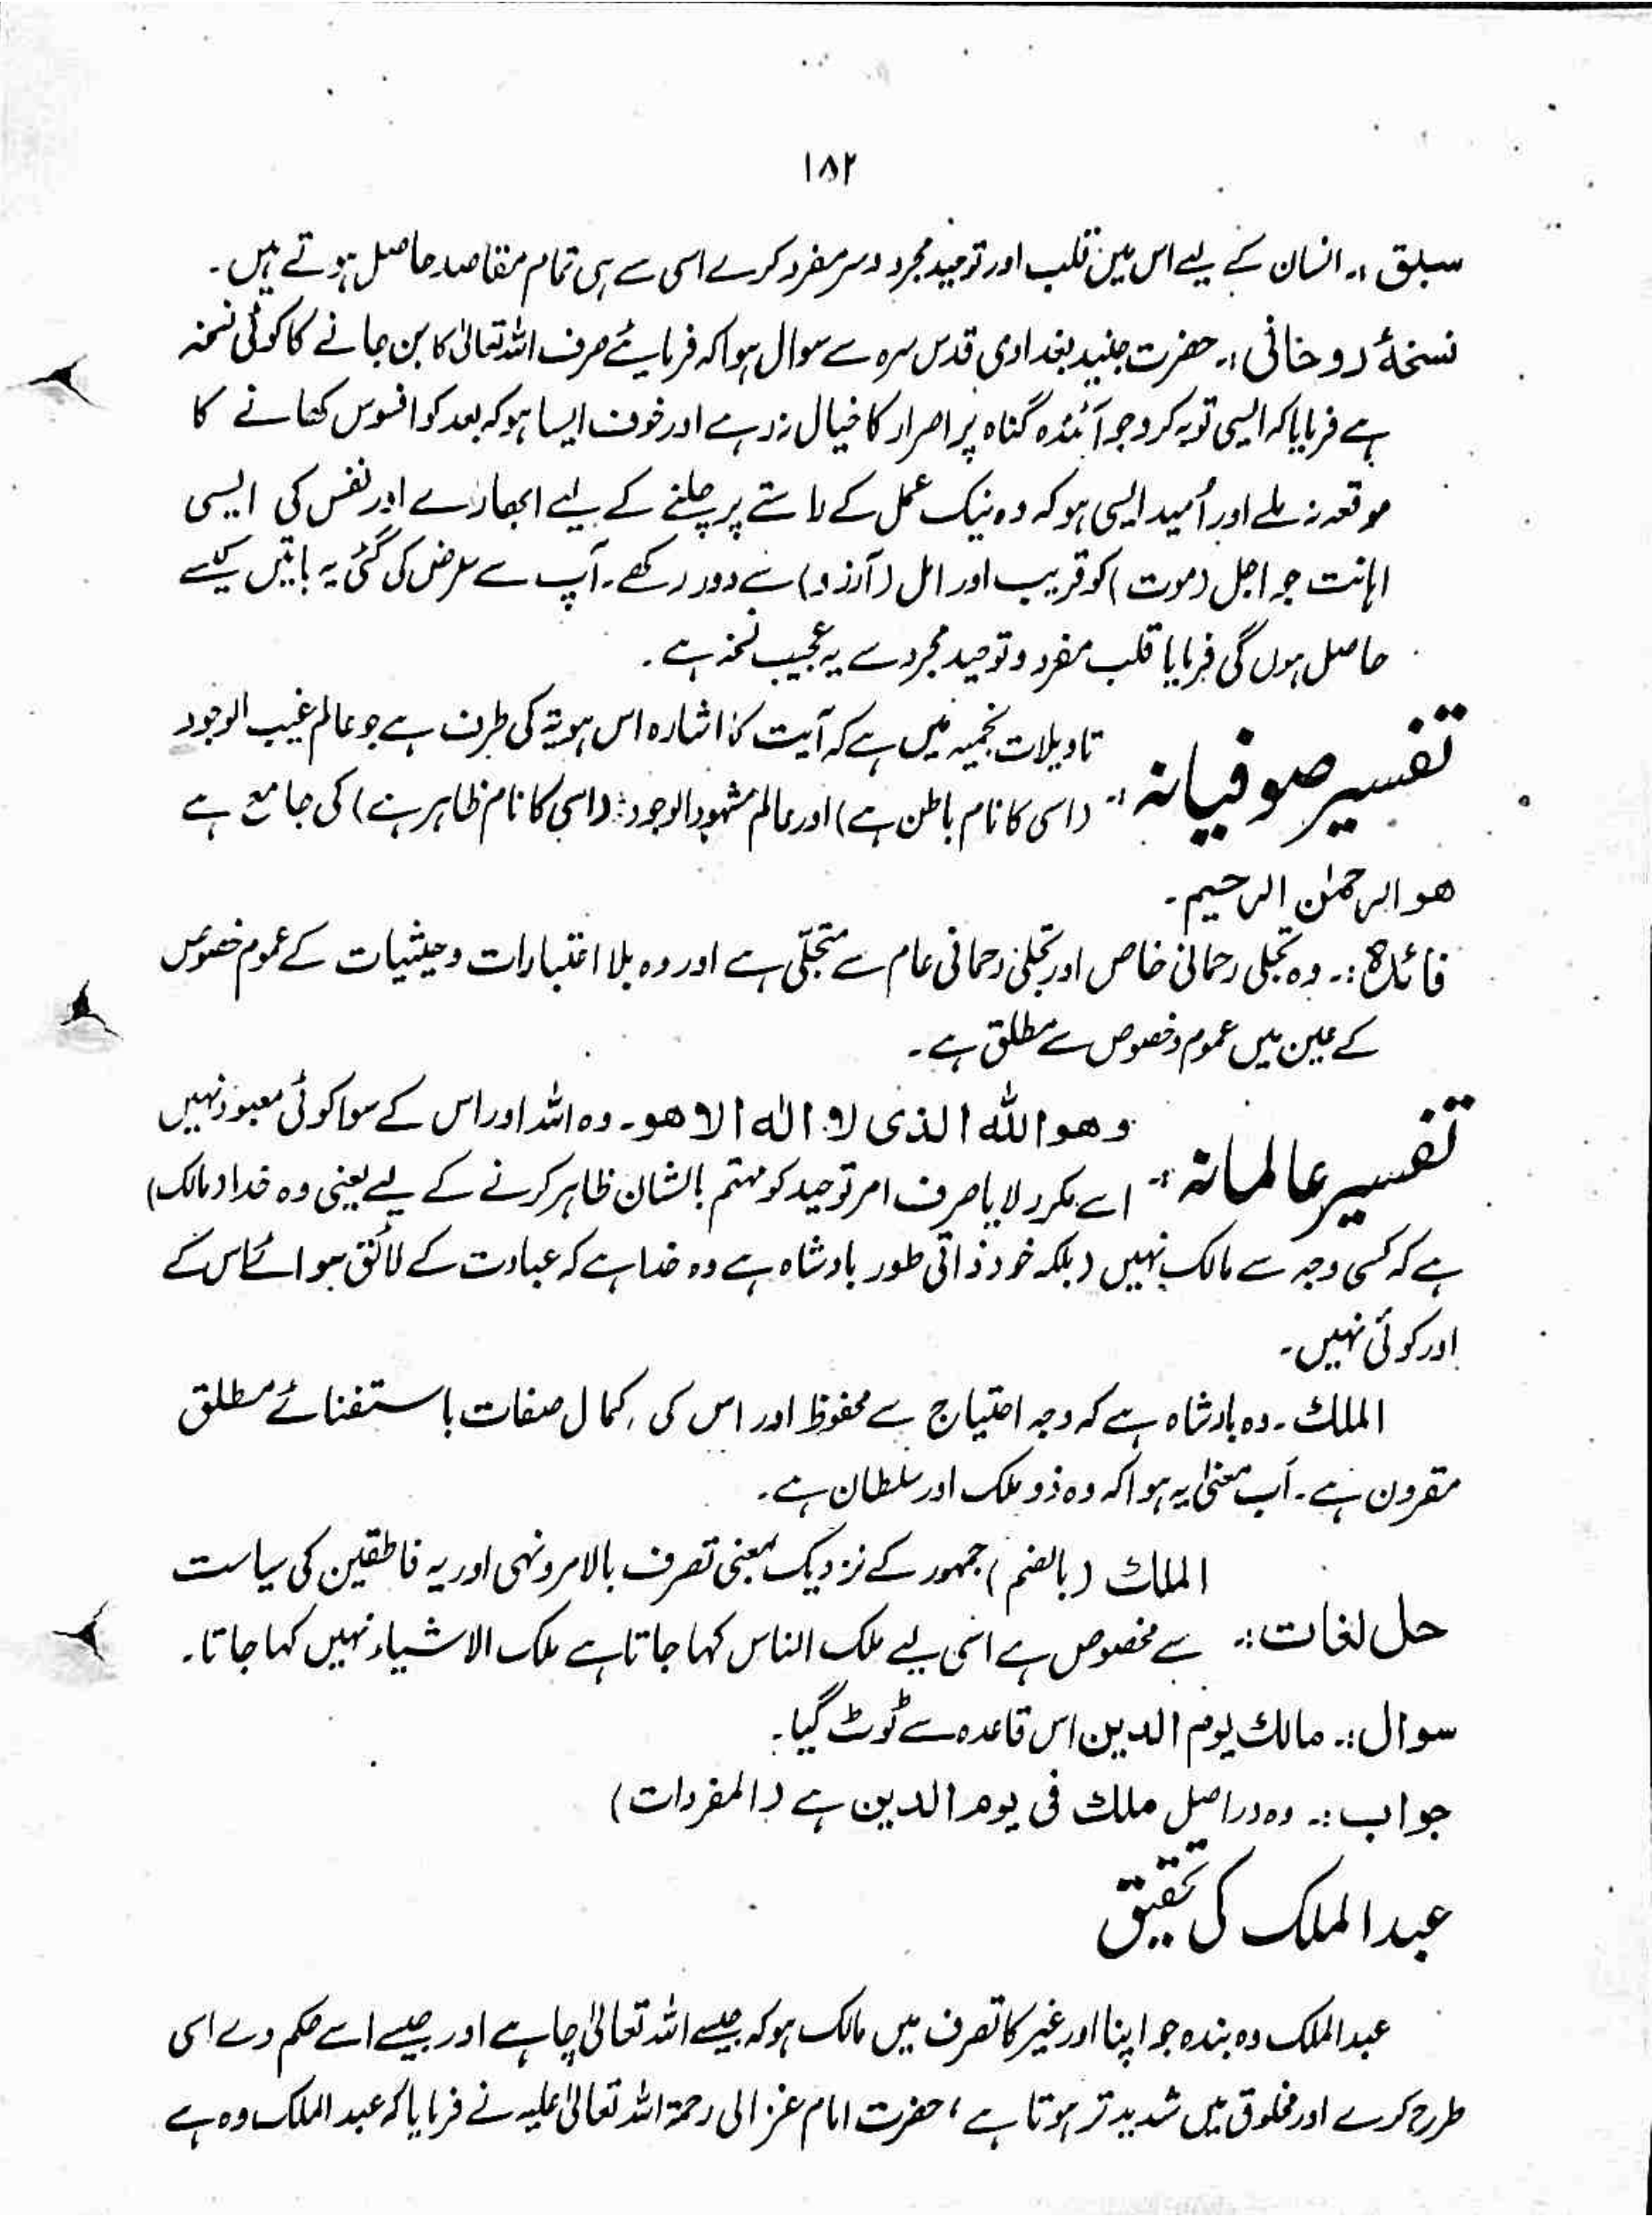 ۱۸۲
سبق :۔ انسان کے لیے اس میں قلب اور توحید مجرد و سر مفرد کرے اسی سے ہی تمام مقاصد حاصل ہوتے ہیں۔
نسخۂ روحانی :۔ حضرت جنید بغدادی قدس سرہ سے سوال ہوا کہ فرمایئے صرف اللہ تعالیٰ کا بن جانے کا کوئی نسخہ
ہے فرمایا کہ ایسی توبہ کرو جو آئندہ گناہ پر اصرار کا خیال نہ رہے اور خوف ایسا ہو کہ بعد کو افسوس کھانے کا
موقعہ نہ ملے اور اُمید ایسی ہو کہ وہ نیک عمل کے راستے پر چلنے کے لیے ابھارے اور نفس کی ایسی
اہانت جو اجل (موت) کو قریب اور امل (آرزو) سے دور رکھے۔ آپ سے عرض کی گئی یہ باتیں کیسے
حاصل ہوں گی فرمایا قلب مفرد و توحید مجرد سے یہ عجیب نسخہ ہے۔
تفسیر صوفیانہ :۔ تاویلات نجمیہ میں ہے کہ آیت کا اشارہ اس ہویۃ کی طرف ہے جو عالم غیب الوجود
(اسی کا نام باطن ہے) اور عالم مشہود الوجود (اسی کا نام ظاہر ہے) کی جامع ہے
ھو الرحمٰن الرحیم۔
فائدہ :۔ وہ تجلی رحمانی خاص اور تجلیٔ رحمانی عام سے متجلّی ہے اور وہ بلا اعتبارات و حیثیات کے عموم خصوص
کے عین میں عموم و خصوص سے مطلق ہے۔
تفسیر عالمانہ :۔ وھو اللہ الذی لا الٰہ الا ھو۔ وہ اللہ اور اس کے سوا کوئی معبود نہیں
اسے مکرر لایا صرف امر توحید کو مہتم بالشان ظاہر کرنے کے لیے یعنی وہ خدا و مالک)
ہے کہ کسی وجہ سے مالک نہیں (بلکہ خود ذاتی طور بادشاہ ہے وہ خدا ہے کہ عبادت کے لائق سوائے اس کے
اور کوئی نہیں۔
الملک۔ وہ بادشاہ ہے کہ وجہ احتیاج سے محفوظ اور اس کی کمال صفات باستغنائے مطلق
مقرون ہے۔ اَب معنیٰ یہ ہوا کہ وہ ذو ملک اور سلطان ہے۔
حل لغات :۔ الملک (بالضم) جمہور کے نزدیک بمعنی تصرف بالامر و نہی اور یہ ناطقین کی سیاست
سے مخصوص ہے اسی لیے ملک الناس کہا جاتا ہے ملک الاشیاء نہیں کہا جاتا۔
سوال :۔ مالک یوم الدین اس قاعدہ سے ٹوٹ گیا۔
جواب :۔ وہ دراصل ملک فی یوم الدین ہے (المفردات)
عبد الملک کی تحقیق
عبد الملک وہ بندہ جو اپنا اور غیر کا تصرف میں مالک ہو کہ جیسے اللہ تعالیٰ چاہے اور جیسے اسے حکم دے اسی
طرح کرے اور مخلوق میں شدید تر ہوتا ہے، حضرت امام غزالی رحمۃ اللہ تعالیٰ علیہ نے فرمایا کہ عبد الملک وہ ہے